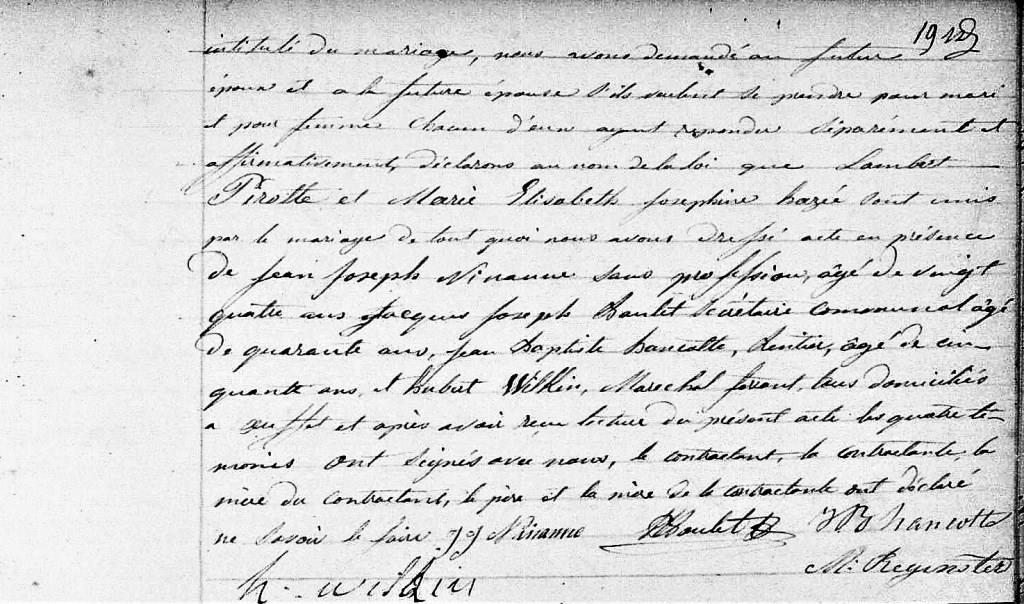 intitulé du mariage, nous avons demandé au futur
époux et a la future épouse s'ils veulent se prendre pour mari
et pour femme chacun d'eux ayant repondu séparément et
affirmativement, déclarons au nom de la loi que Lambert
Pirotte et Marie Elisabeth Josephine hazée sont unis
par le mariage de tout quoi nous avons dressé acte en présence
de Jean Joseph Ninanne sans profession, âgé de vingt
quatre ans Jacques Joseph Boulet Secrétaire communal âgé
de quarante ans, Jean Baptiste hancotte, Rentier, âgé de cin
quante ans, et hubert Wilkin, Marechal ferrant, tous domiciliés
a et après avoir reçu lecture du présent acte les quatre té
moins ont seignés avec nous, le contractant, la contractante, la
mère du contractant, le père et la mère de la contractante ont déclaré
ne savoir le faire JJ Ninanne JJBoulet JB hancotte
M: Reginster
h. wilkin